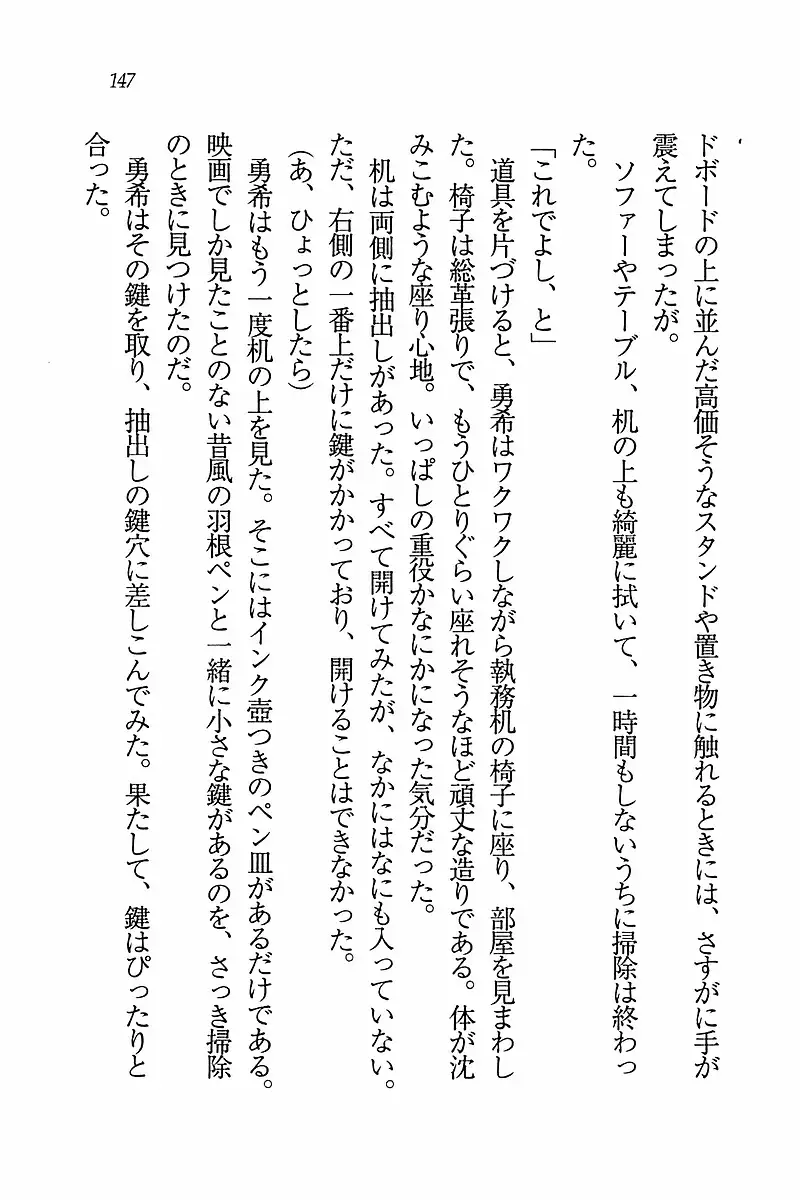 147
ドボードの上に並んだ高価そうなスタンドや置き物に触れるときには、さすがに手が
震えてしまったが。
ソファーやテーブル、机の上も綺麗に拭いて、一時間もしないうちに掃除は終わっ
た。
「これでよし、と」
道具を片づけると、勇希はワクワクしながら執務机の椅子に座り、部屋を見まわし
た。椅子は総革張りで、もうひとりぐらい座れそうなほど頑丈な造りである。体が沈
みこむような座り心地。いっぱしの重役かなにかになった気分だった。
机は両側に抽出しがあった。すべて開けてみたが、なかにはなにも入っていない。
ただ、右側の一番上だけに鍵がかかっており、開けることはできなかった。
（あ、ひょっとしたら）
勇希はもう一度机の上を見た。そこにはインク壺つきのペン皿があるだけである。
映画でしか見たことのない昔風の羽根ペンと一緒に小さな鍵があるのを、さっき掃除
のときに見つけたのだ。
勇希はその鍵を取り、抽出しの鍵穴に差しこんでみた。果たして、鍵はぴったりと
合った。